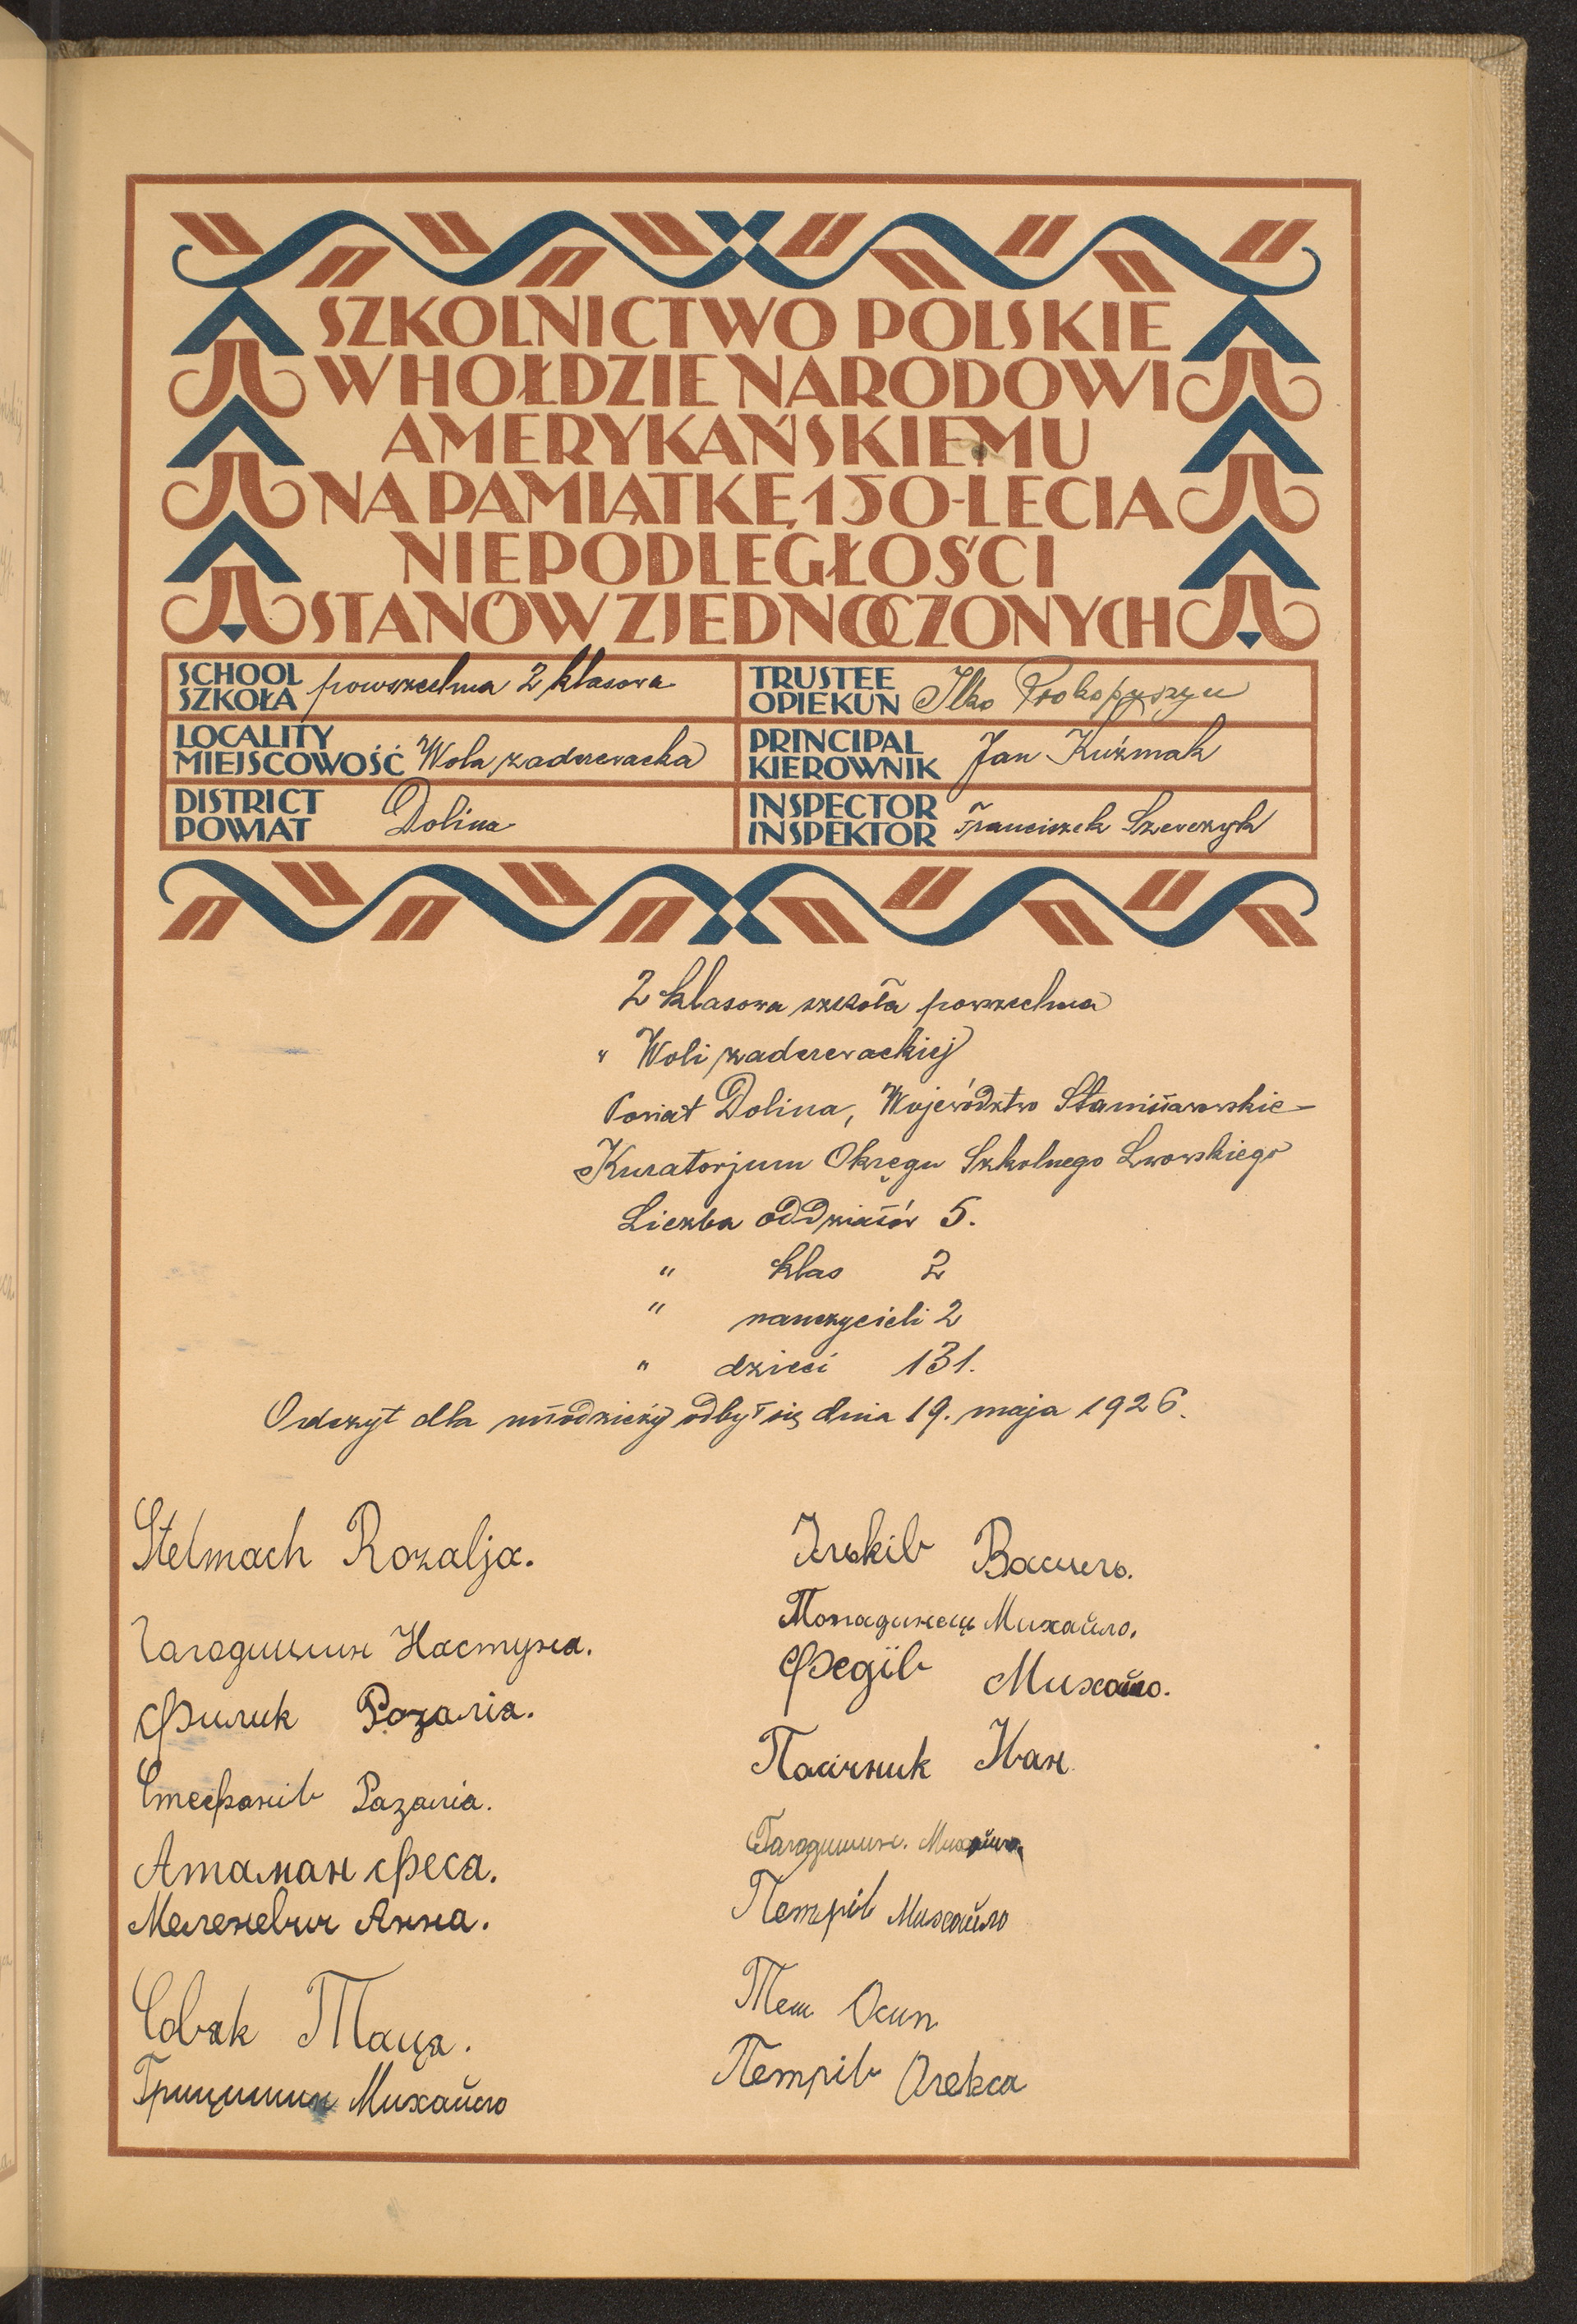 SZKOLNICTWO POLSKIE
W HOŁDZIE NARODOWI
AMERYKAŃSKIEMU
NA PAMIĄTKĘ 150-LECIA
NIEPODLEGŁOŚCI
STANÓW ZJEDNOCZONYCH
SCHOOL
SZKOŁA powszechna 2 klasowa
TRUSTEE
OPIEKUN Ilko Prokopyszyn
LOCALITY
MIEJSCOWOŚĆ Wola zaderewacka
PRINCIPAL
KIEROWNIK Jan Kuźmak
DISTRICT
POWIAT Dolina
INSPECTOR
INSPEKTOR Franciszek Szewczyk
2 klasowa szkoła powszechna
w Woli zaderewackiej
Powiat Dolina, Województwo Stanisławowskie
Kuratorjum Okręgu Szkolnego Lwowskiego
Liczba oddziałów 5.
" klas 2
" nauczycieli 2
" dzieci 131.
Odczyt dla młodzieży odbył się dnia 19. maja 1926.
Stelmach Rozalja.
Гагодишин Настуня.
Филик Розалія.
Стефанів Разалія.
Атаман Феса.
Меленевич Анна.
Совяк Таця.
Грицишин Михайло
Ільків Василь.
Попадинець Михайло.
Федїв Михайло.
Пасічник Іван
Гагодишин. Михайло.
Петрів Михайло
Теш Осип
Петрів Олекса